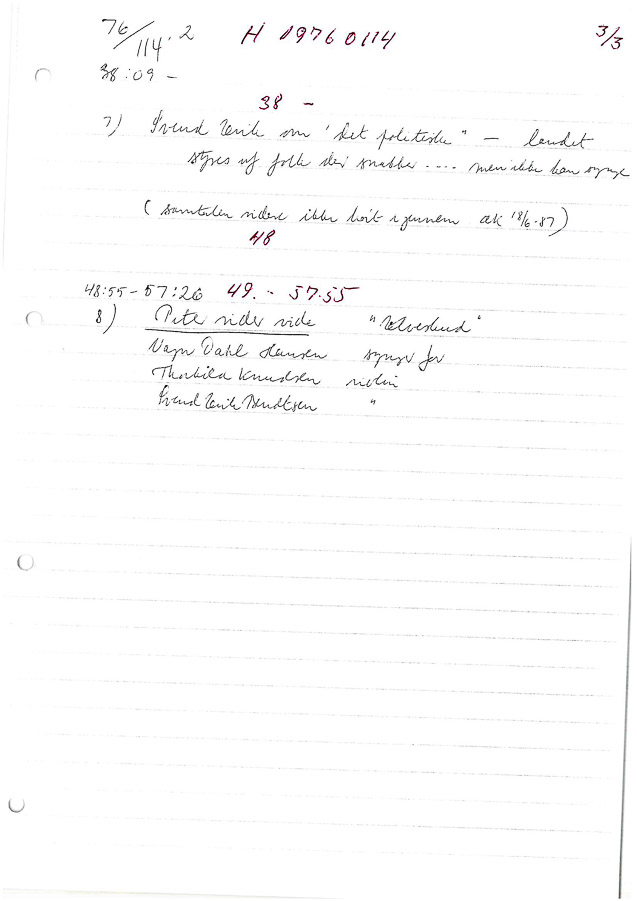 76/114.2 H 19760114 3/3
38:09 -
38 -
7) Svend Erik om "det politiske" - landet
styres af folk der snakker .... men ikke kan synge
(samtalen videre ikke hørt igennem æk 18/6-87)
48
48:55 - 57:26 49. - 57.55
8) Peter rider vide " "
Vagn Dahl Hansen synger for
Thorkild Knudsen violin
Svend Erik Bendtsen "